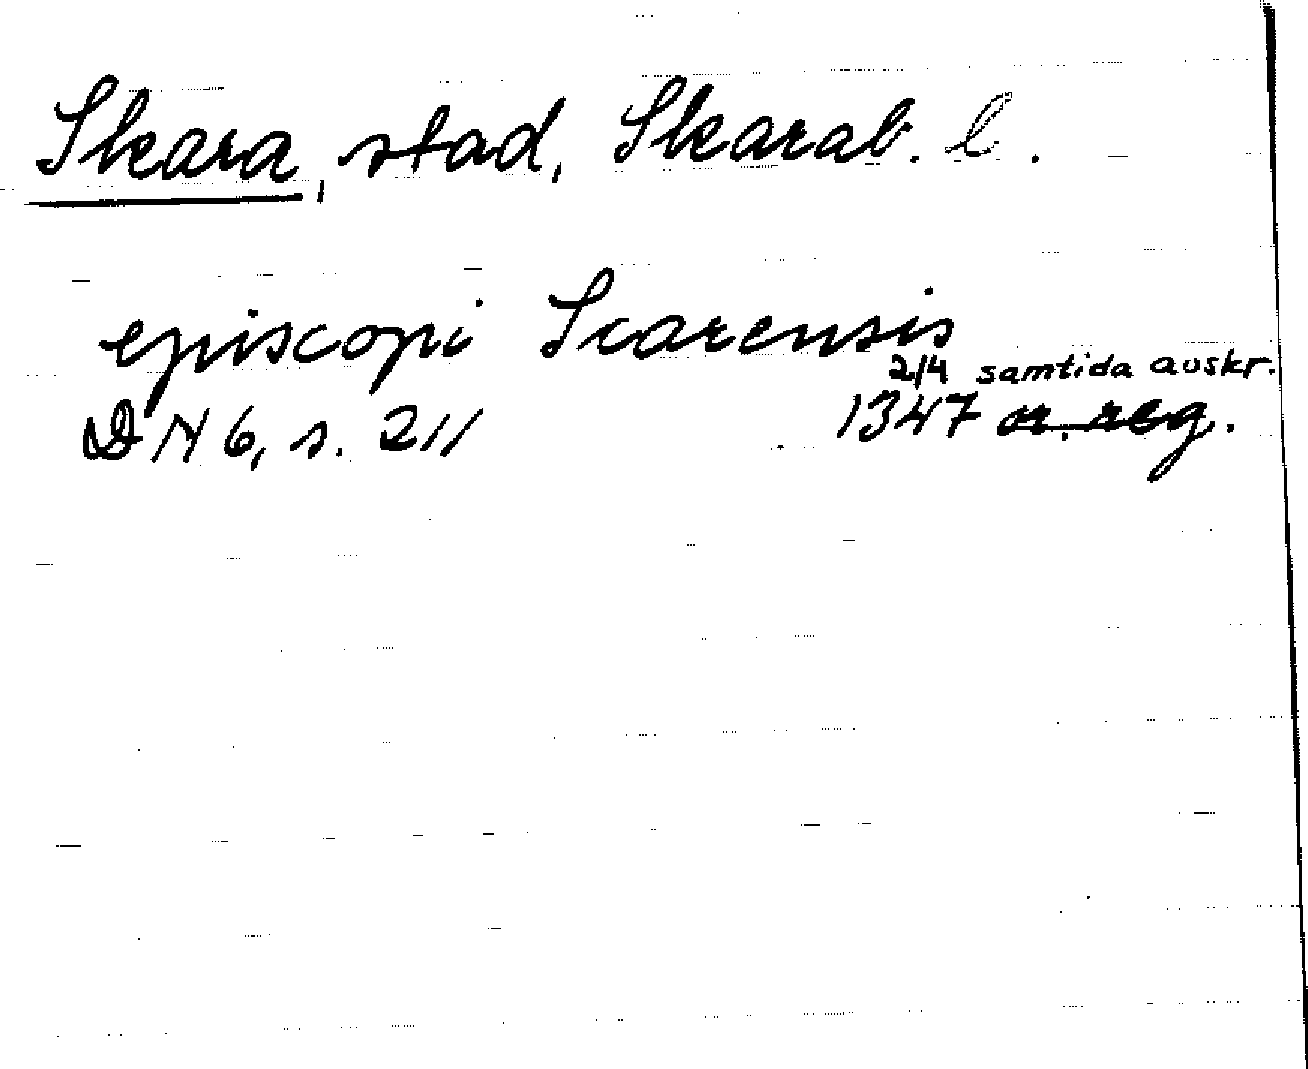 Skara, stad, Skarab. l.
episcopi Scarensis
2/4 samtida avskr.
DN 6, s. 211 1347 or. reg.